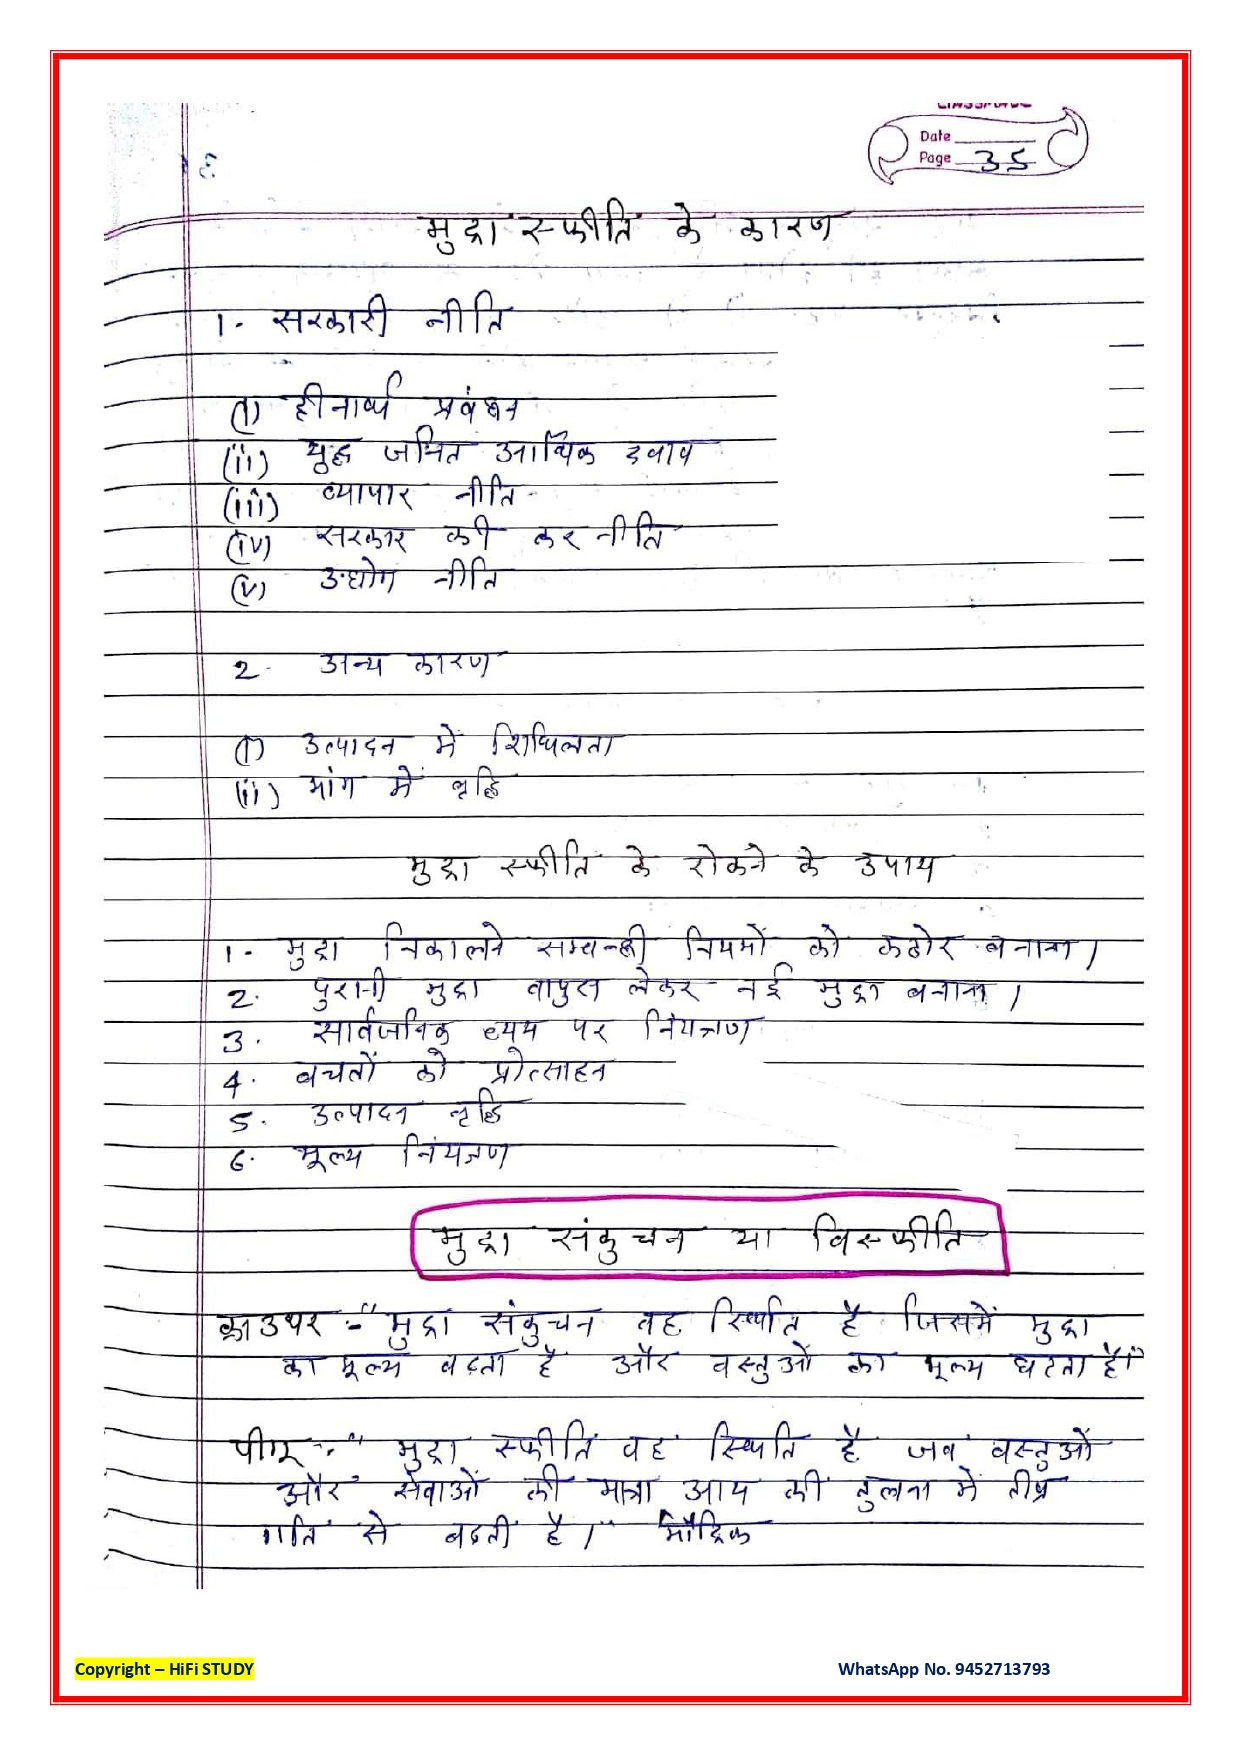 Date
Page 35
मुद्रा स्फीति के कारण
1. सरकारी नीति
(i) हीनार्थ प्रबंधन
(ii) युद्ध जनित आर्थिक दवाव
(iii) व्यापार नीति
(iv) सरकार की कर नीति
(v) उद्योग नीति
2. अन्य कारण
(i) उत्पादन में शिथिलता
(ii) मांग में वृद्धि
मुद्रा स्फीति के रोकने के उपाय
1. मुद्रा निकालने सम्बन्धी नियमों को कठोर बनाना।
2. पुरानी मुद्रा वापुस लेकर नई मुद्रा बनाना।
3. सार्वजनिक व्यय पर नियंत्रण
4. बचतों को प्रोत्साहन
5. उत्पादन वृद्धि
6. मूल्य नियंत्रण
मुद्रा संकुचन या विस्फीति
क्राउथर :- "मुद्रा संकुचन वह स्थिति है जिसमें मुद्रा
का मूल्य बढ़ता है और वस्तुओं का मूल्य घटता है।"
पीगू :- "मुद्रा स्फीति वह स्थिति है जब वस्तुओं
और सेवाओं की मात्रा आय की तुलना में तीव्र
गति से बढ़ती है।" मौद्रिक
Copyright – HiFi STUDY
WhatsApp No. 9452713793